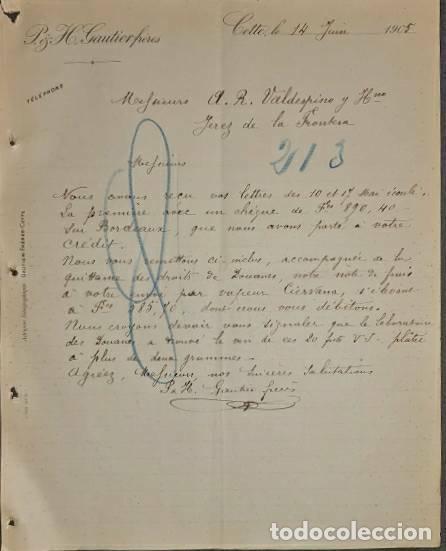 P. & H. Gautier frères
Cette, le 14 Juin 1905
TÉLÉPHONE
Messieurs A. R. Valdespino y Hno
Jerez de la Frontera
213
Messieurs
Nous avons reçu vos lettres des 10 et 17 Mai écoulé.
La première avec un chèque de Frs 890,40
sur Bordeaux, que nous avons porté à votre
crédit.
Nous vous remettons ci-inclus, accompagnée de la
quittance des droits de Douanes, notre note de frais
à votre envoi par vapeur Ciervana, s'élevant
à Frs 585,70, dont nous vous débitons.
Nous croyons devoir vous signaler que le laboratoire
des Douanes a trouvé le vin de ces 20 futs V.S. plâtré
à plus de deux grammes.-
Agréez, Messieurs, nos sincères salutations
P & H. Gautier frères
Adresse télégraphique: GAUTIER FRÈRES-CETTE
todocoleccion.net